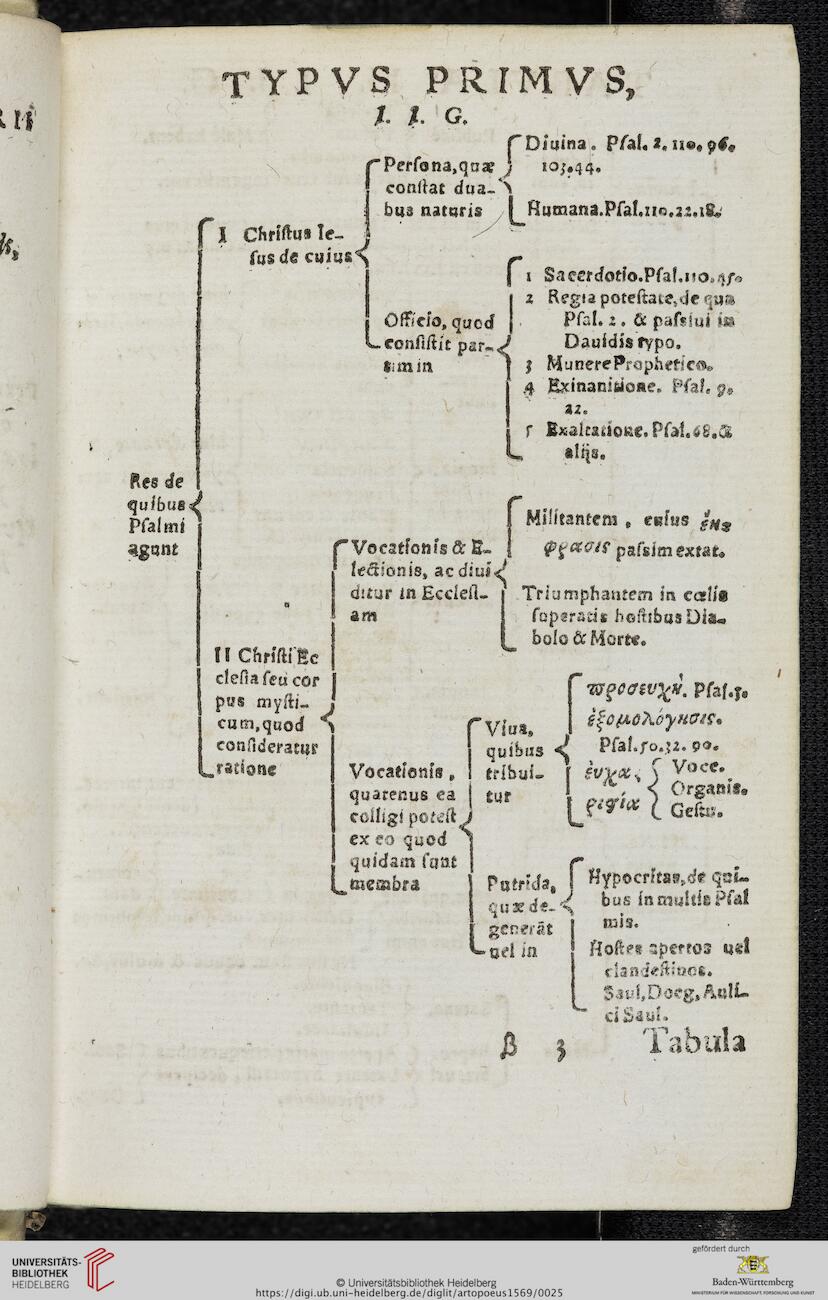 TYPVS PRIMVS,
I. I. G.
Res de
quibus
Pſalmi
agunt
I Chriſtus Ie-
ſus de cuius
Perſona, quæ
conſtat dua-
bus naturis
Diuina. Pſal. 2. 110. 96.
103. 44.
Humana. Pſal. 110. 22. 18.
Officio, quod
conſiſtit par-
tim in
1 Sacerdotio. Pſal. 110. 45.
2 Regia poteſtate, de qua
Pſal. 2. & paſsiui in
Dauidis typo.
3 Munere Prophetico.
4 Exinanitione. Pſal. 9.
22.
5 Exaltatione. Pſal. 68. &
alijs.
II Chriſti Ec
cleſia ſeu cor
pus myſti-
cum, quod
conſideratur
ratione
Vocationis & E-
lectionis, ac diui
ditur in Eccleſi-
am
Militantem, cuius ἔκ
φρασις paſsim extat.
Triumphantem in cœlis
ſuperatis hoſtibus Dia-
bolo & Morte.
Vocationis,
quatenus ea
colligi poteſt
ex eo quod
quidam ſunt
membra
Viua,
quibus
tribui-
tur
προσευχὴ. Pſal. 5.
ἐξομολόγησις.
Pſal. 50. 32. 90.
ἐυχα-
ριςία
Voce.
Organis.
Geſtu.
Putrida,
quæ de-
generāt
uel in
Hypocritas, de qui-
bus in multis Pſal
mis.
Hoſtes apertos uel
clandeſtinos.
Saul, Doeg, Auli-
ci Saul.
β 3 Tabula
UNIVERSITÄTS-
BIBLIOTHEK
HEIDELBERG
© Universitätsbibliothek Heidelberg
https://digi.ub.uni-heidelberg.de/diglit/artopoeus1569/0025
gefördert durch
Baden-Württemberg
MINISTERIUM FÜR WISSENSCHAFT, FORSCHUNG UND KUNST